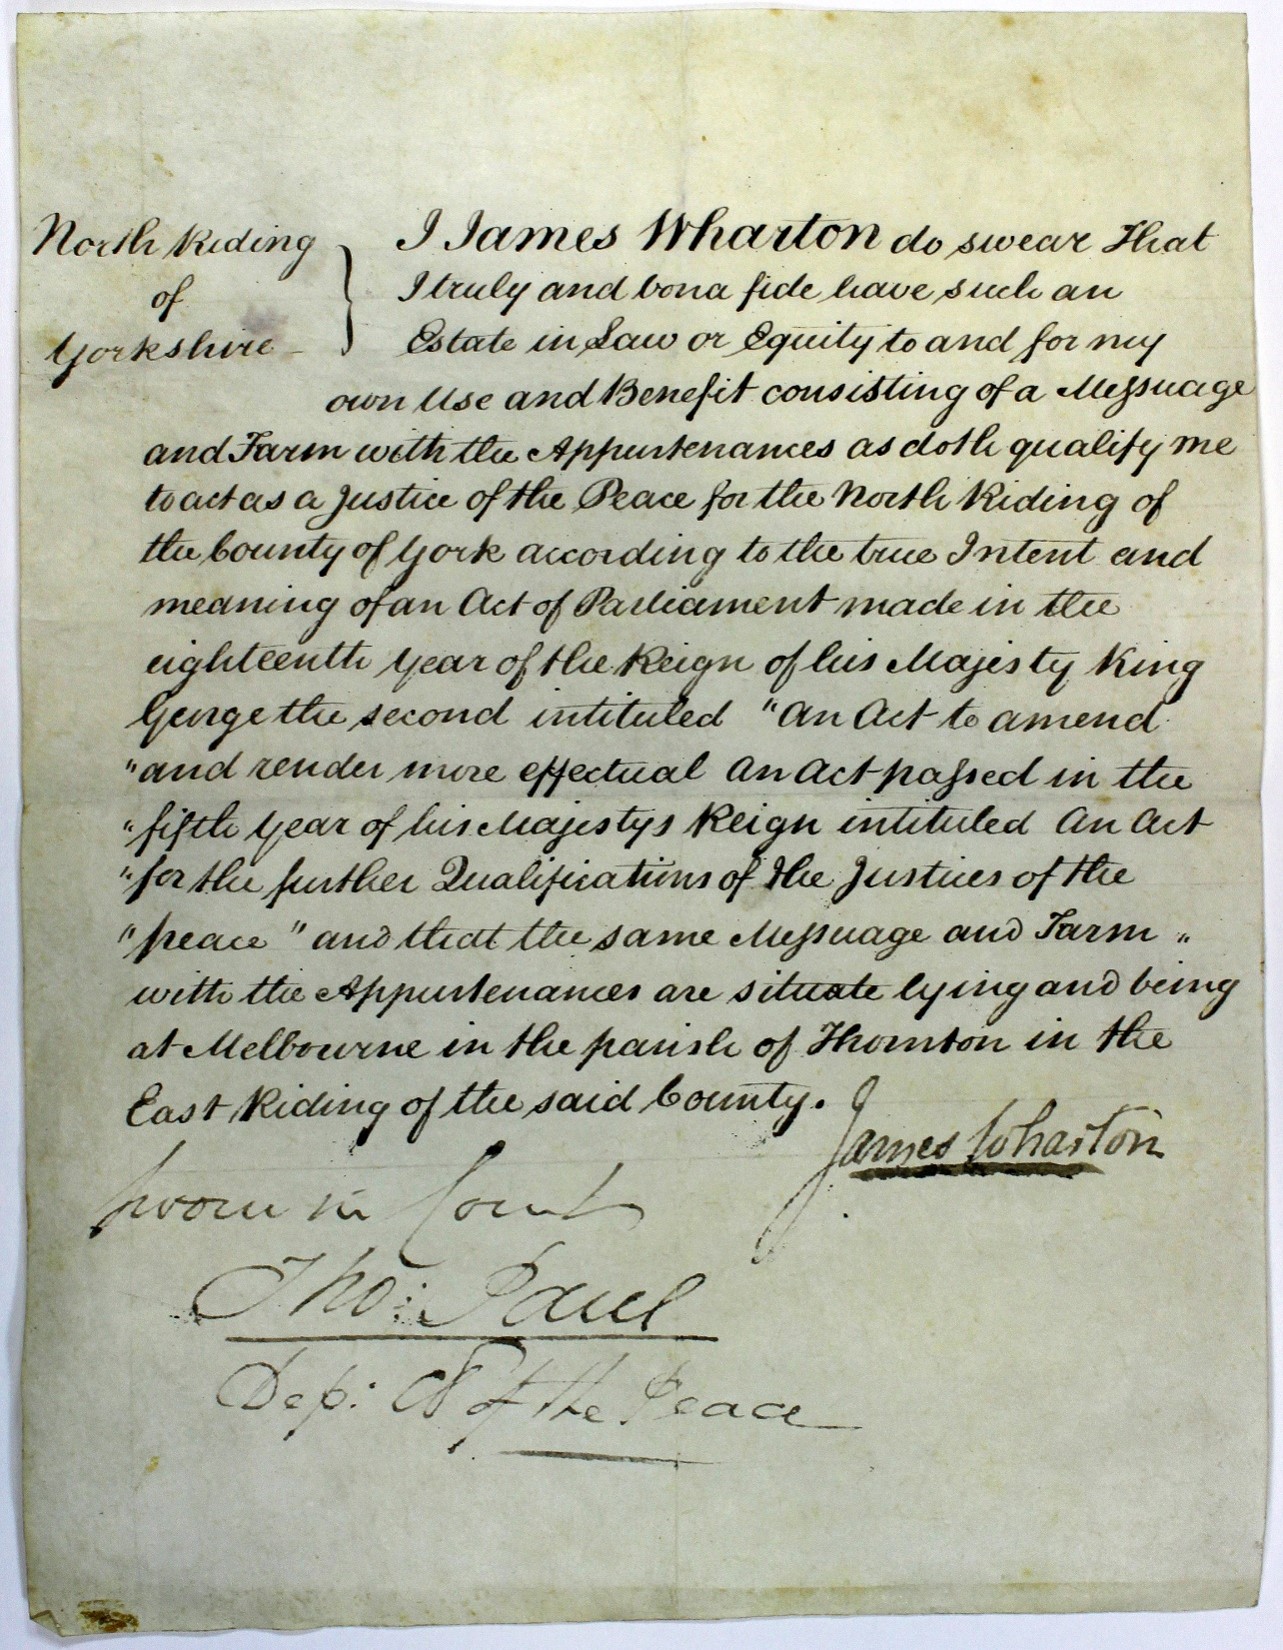 North Riding
of
Yorkshire
I James Wharton do swear That
I truly and bona fide have such an
Estate in Law or Equity to and for my
own Use and Benefit consisting of a Messuage
and Farm with the Appurtenances as doth qualify me
to act as a Justice of the Peace for the North Riding of
the County of York according to the true Intent and
meaning of an Act of Parliament made in the
eighteenth Year of the Reign of his Majesty King
George the second intituled "An Act to amend
"and render more effectual An Act passed in the
"fifth Year of his Majestys Reign intituled An Act
"for the further Qualifications of the Justices of the
"peace" and that the same Messuage and Farm "
with the Appurtenances are situate lying and being
at Melbourne in the parish of Thornton in the
East Riding of the said County.
James Wharton
Sworn in Court
Tho: Paul
Dep: Cl of the Peace